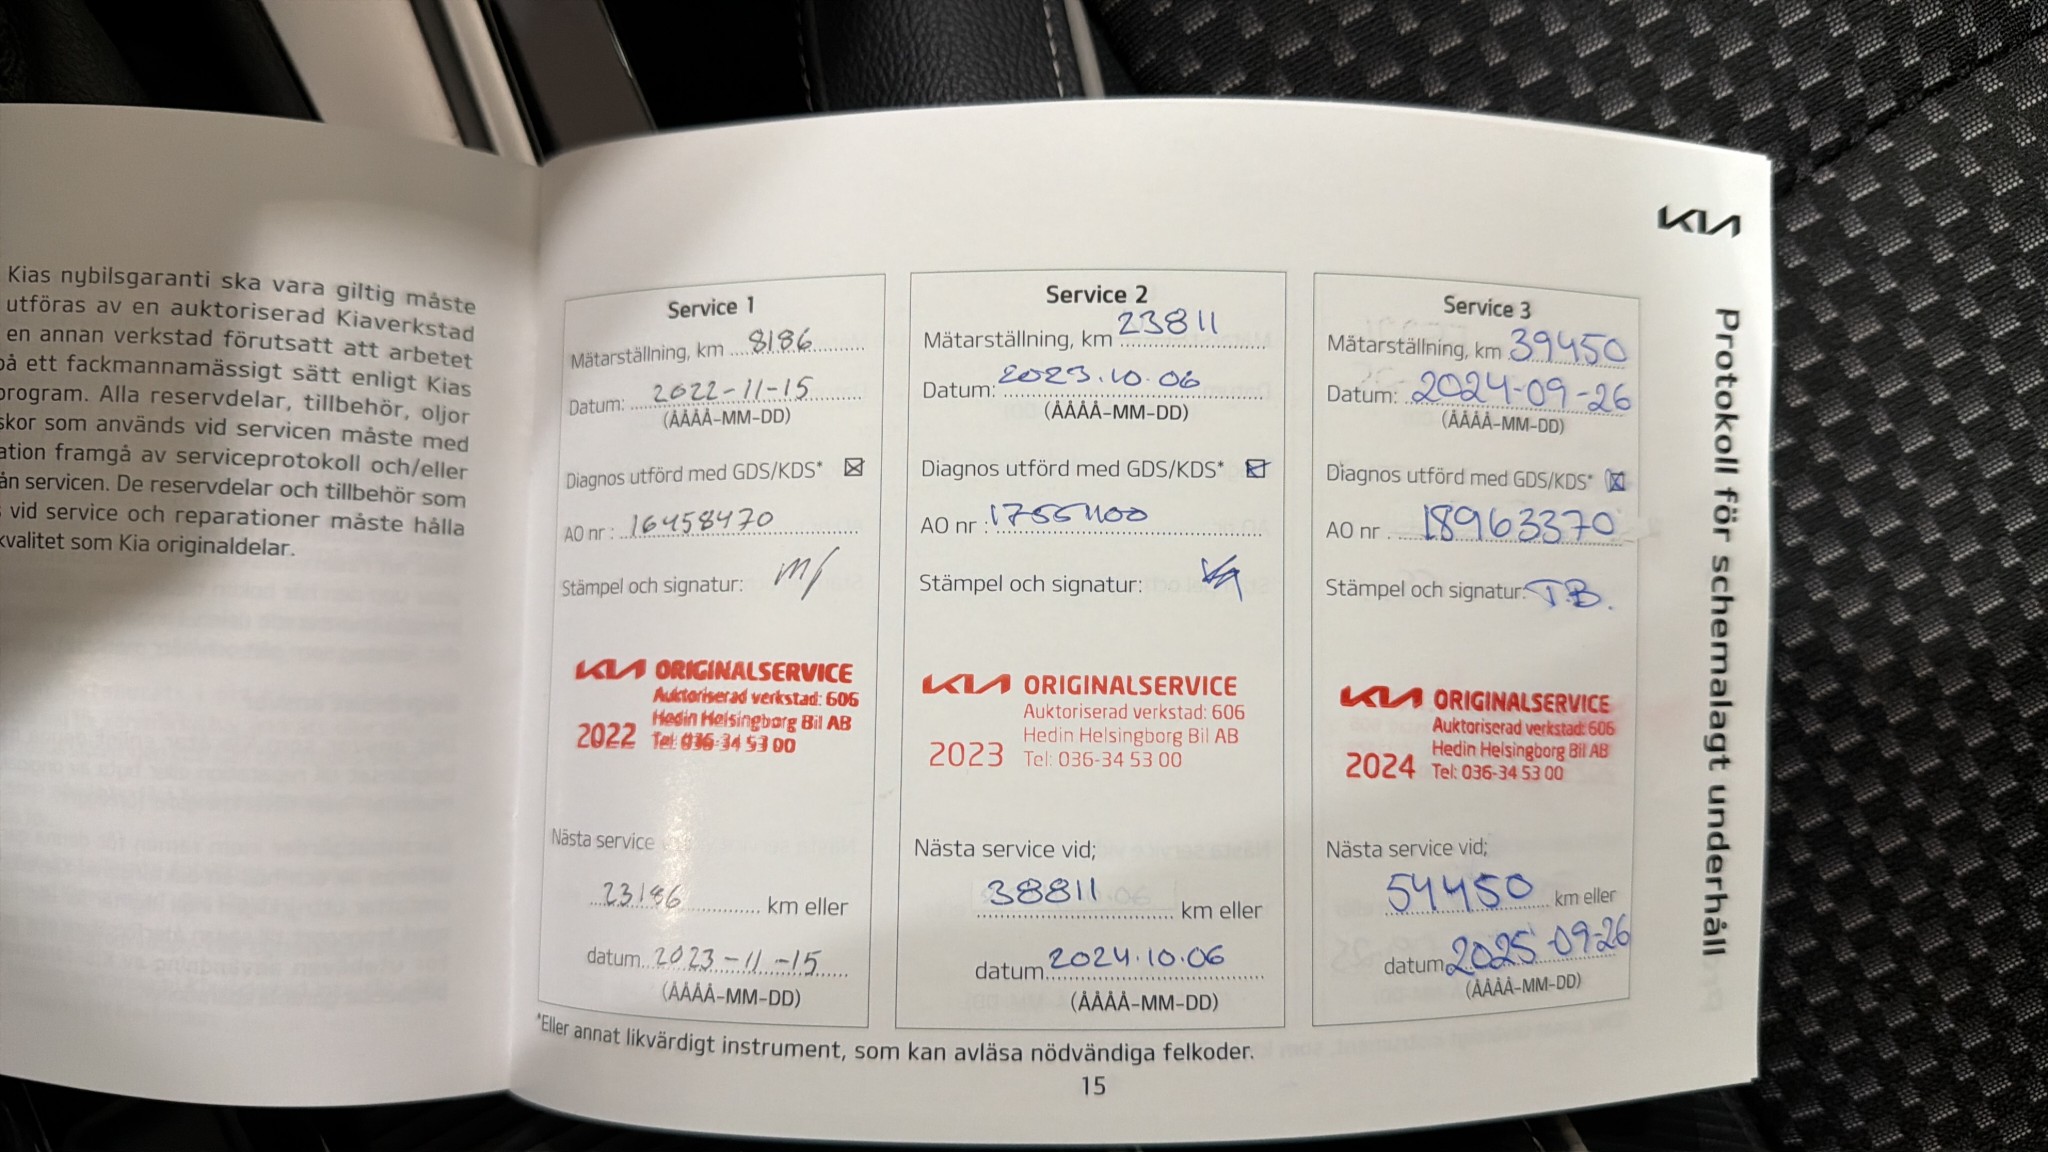 Kias nybilsgaranti ska vara giltig måste
utföras av en auktoriserad Kiaverkstad
en annan verkstad förutsatt att arbetet
på ett fackmannamässigt sätt enligt Kias
program. Alla reservdelar, tillbehör, oljor
skor som används vid servicen måste med
ation framgå av serviceprotokoll och/eller
ån servicen. De reservdelar och tillbehör som
vid service och reparationer måste hålla
kvalitet som Kia originaldelar.
KIA
Protokoll för schemalagt underhåll
Service 1
Mätarställning, km 8186
Datum: 2022-11-15
(ÅÅÅÅ-MM-DD)
Diagnos utförd med GDS/KDS* ☒
AO nr : 16458470
Stämpel och signatur:
KIA ORIGINALSERVICE
Auktoriserad verkstad: 606
Hedin Helsingborg Bil AB
2022 Tel: 036-34 53 00
Nästa service
23186 km eller
datum 2023-11-15
(ÅÅÅÅ-MM-DD)
Service 2
Mätarställning, km 23811
Datum: 2023.10.06
(ÅÅÅÅ-MM-DD)
Diagnos utförd med GDS/KDS*
AO nr :
Stämpel och signatur:
KIA ORIGINALSERVICE
Auktoriserad verkstad: 606
Hedin Helsingborg Bil AB
2023 Tel: 036-34 53 00
Nästa service vid;
38811 km eller
datum 2024.10.06
(ÅÅÅÅ-MM-DD)
Service 3
Mätarställning, km 39450
Datum: 2024-09-26
(ÅÅÅÅ-MM-DD)
Diagnos utförd med GDS/KDS* ☒
AO nr : 18963370
Stämpel och signatur: T.B.
KIA ORIGINALSERVICE
Auktoriserad verkstad: 606
Hedin Helsingborg Bil AB
2024 Tel: 036-34 53 00
Nästa service vid;
54450 km eller
datum 2025-09-26
(ÅÅÅÅ-MM-DD)
*Eller annat likvärdigt instrument, som kan avläsa nödvändiga felkoder.
15